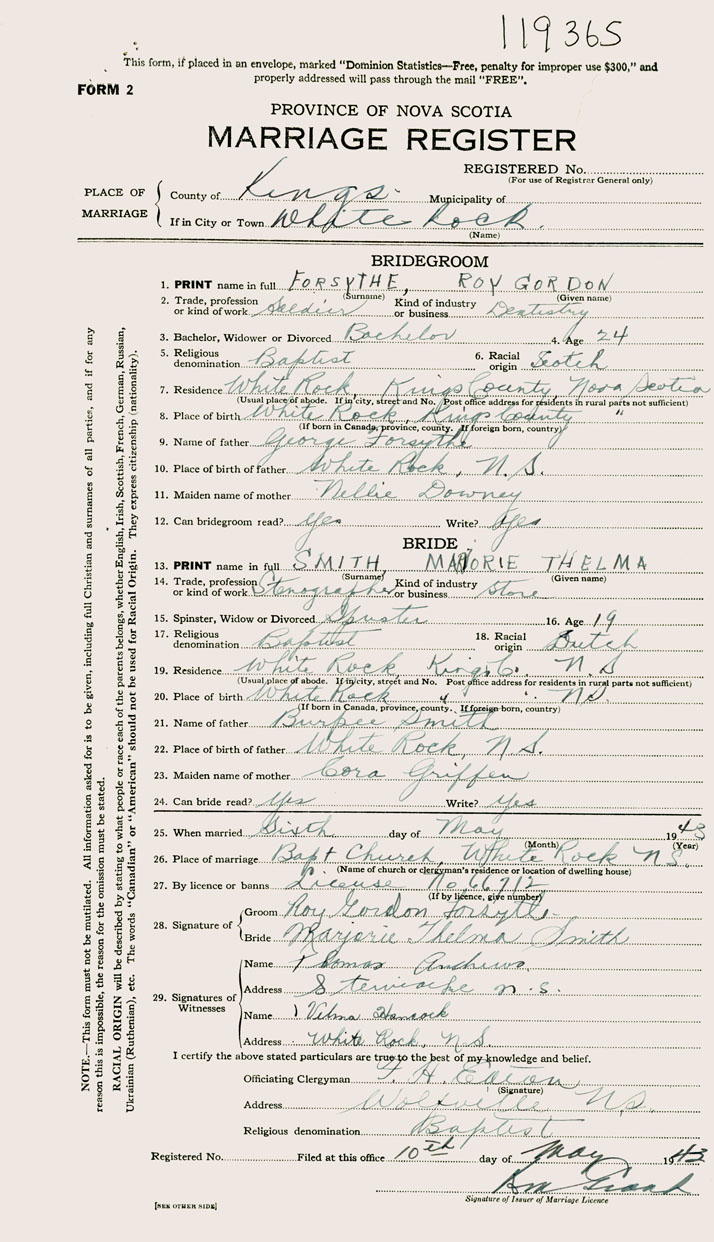 119365
This form, if placed in an envelope, marked "Dominion Statistics—Free, penalty for improper use $300," and
properly addressed will pass through the mail "FREE".
FORM 2
PROVINCE OF NOVA SCOTIA
MARRIAGE REGISTER
REGISTERED No.
(For use of Registrar General only)
PLACE OF MARRIAGE
County of Kings Municipality of
If in City or Town White Rock.
(Name)
BRIDEGROOM
1. PRINT name in full FORSYTHE, ROY GORDON
(Surname) (Given name)
2. Trade, profession or kind of work Soldier Kind of industry or business Dentistry
3. Bachelor, Widower or Divorced Bachelor 4. Age 24
5. Religious denomination Baptist 6. Racial origin Scotch
7. Residence White Rock, Kings County, Nova Scotia
(Usual place of abode. If in city, street and No. Post office address for residents in rural parts not sufficient)
8. Place of birth White Rock, Kings County "
(If born in Canada, province, county. If foreign born, country)
9. Name of father George Forsythe
10. Place of birth of father White Rock, N.S.
11. Maiden name of mother Nellie Downey
12. Can bridegroom read? Yes Write? Yes
BRIDE
13. PRINT name in full SMITH, MARJORIE THELMA
(Surname) (Given name)
14. Trade, profession or kind of work Stenographer Kind of industry or business Store
15. Spinster, Widow or Divorced Spinster 16. Age 19
17. Religious denomination Baptist 18. Racial origin Dutch
19. Residence White Rock, Kings Co. N.S
(Usual place of abode. If in city, street and No. Post office address for residents in rural parts not sufficient)
20. Place of birth White Rock " " N.S.
(If born in Canada, province, county. If foreign born, country)
21. Name of father Burpee Smith
22. Place of birth of father White Rock, N.S.
23. Maiden name of mother Cora Griffen
24. Can bride read? Yes Write? Yes
25. When married Sixth day of May 1943
(Month) (Year)
26. Place of marriage Bapt Church, White Rock N.S.
(Name of church or clergyman's residence or location of dwelling house)
27. By licence or banns License No 66712
(If by licence, give number)
28. Signature of
Groom Roy Gordon Forsythe
Bride Marjorie Thelma Smith
29. Signatures of Witnesses
Name Thomas Andrews
Address Stewiacke N.S.
Name Velma Hancock
Address White Rock, N.S.
I certify the above stated particulars are true to the best of my knowledge and belief.
Officiating Clergyman H. Eaton
(Signature)
Address Wolfville N.S.
Religious denomination Baptist
Registered No. Filed at this office 10th day of May 1943
Signature of Issuer of Marriage Licence
[SEE OTHER SIDE]
NOTE.—This form must not be mutilated. All information asked for is to be given, including full Christian and surnames of all parties, and if for any
reason this is impossible, the reason for the omission must be stated.
RACIAL ORIGIN will be described by stating to what people or race each of the parents belongs, whether English, Irish, Scottish, French, German, Russian,
Ukrainian (Ruthenian), etc. The words "Canadian" or "American" should not be used for Racial Origin. They express citizenship (nationality).